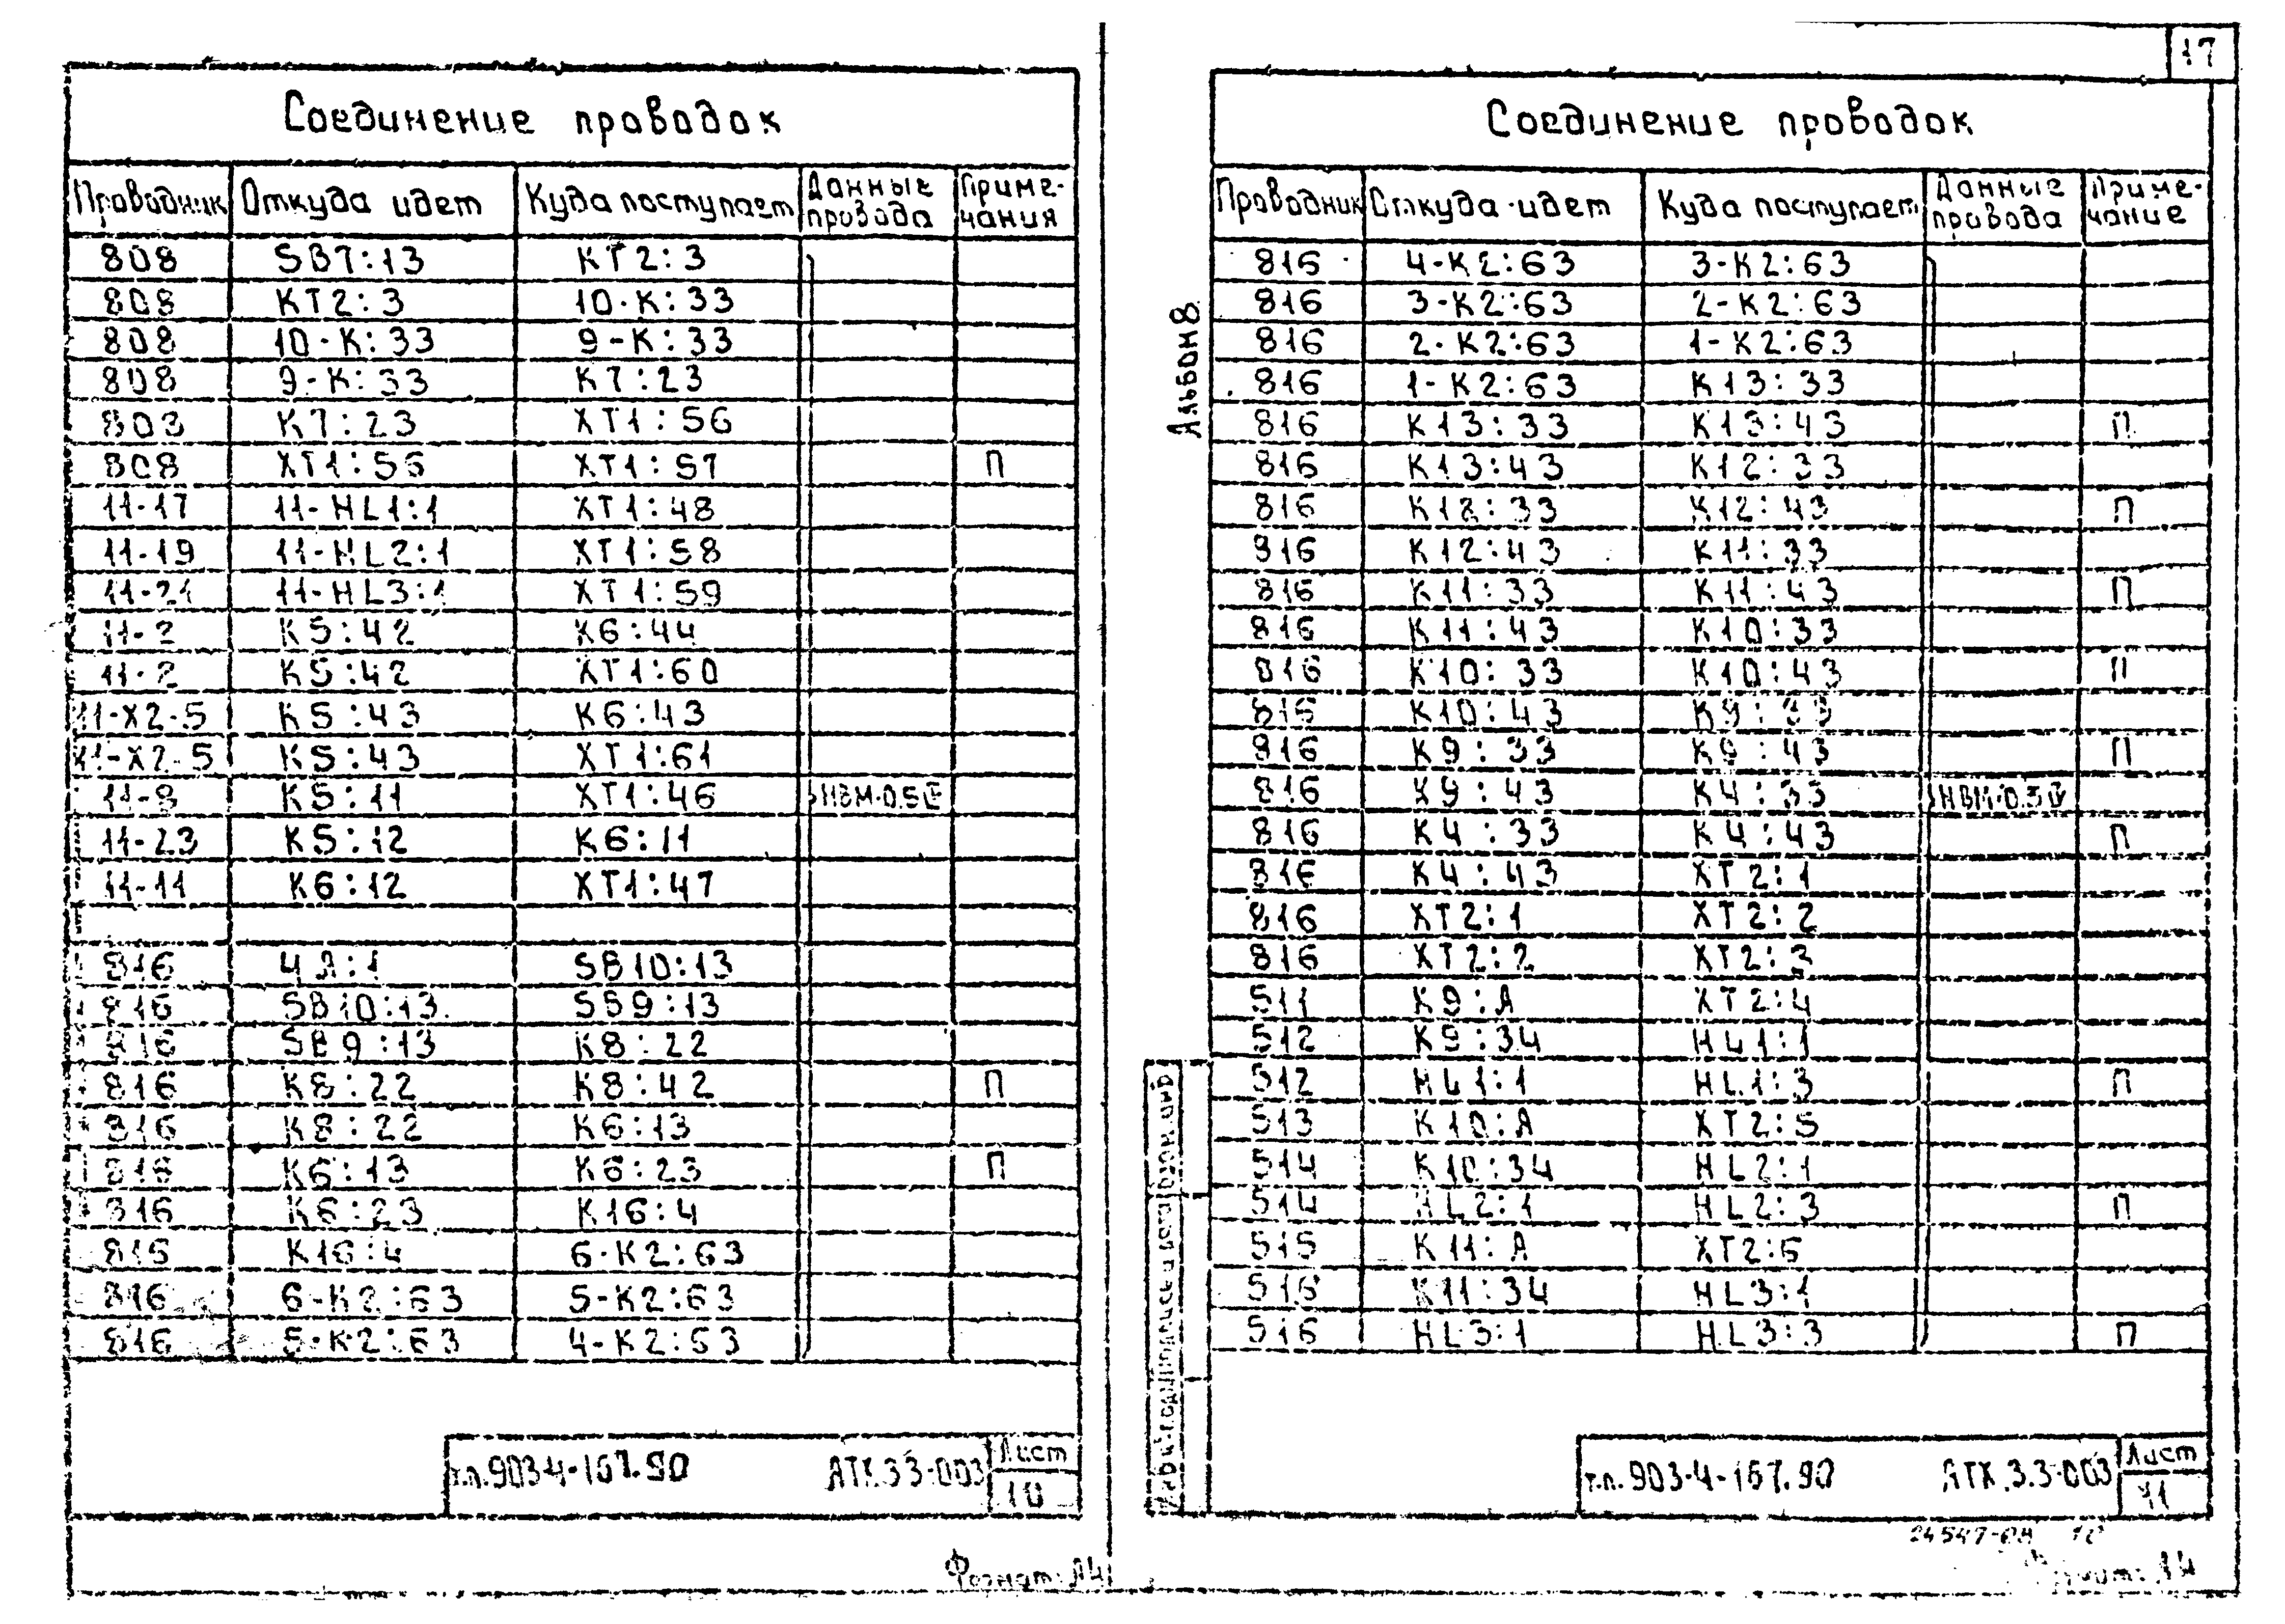 17
Соединение проводок
Проводник Откуда идет Куда поступает Данные провода Примечания
808 SB7:13 КТ2:3
808 КТ2:3 10-К:33
808 10-К:33 9-К:33
808 9-К:33 К7:23
808 К7:23 ХТ1:56
808 ХТ1:56 ХТ1:57 П
11-17 11-HL1:1 ХТ1:48
11-19 11-HL2:1 ХТ1:58
11-21 11-HL3:1 ХТ1:59
11-2 К5:42 К6:44
11-2 К5:42 ХТ1:60
11-Х2-5 К5:43 К6:43
11-Х2-5 К5:43 ХТ1:61
11-8 К5:11 ХТ1:46 НВМ-0.5
11-23 К5:12 К6:11
11-11 К6:12 ХТ1:47
816 4А:1 SB10:13
816 SB10:13 SB9:13
816 SB9:13 К8:22
816 К8:22 К8:42 П
816 К8:22 К6:13
816 К6:13 К6:23 П
816 К6:23 К16:4
816 К16:4 6-К2:63
816 6-К2:63 5-К2:63
816 5-К2:63 4-К2:63
т.п.903-4-167.90 АТХ.33-003 Лист
10
Формат А4
Альбом 8
Соединение проводок
Проводник Откуда идет Куда поступает Данные провода Примечание
816 4-К2:63 3-К2:63
816 3-К2:63 2-К2:63
816 2-К2:63 1-К2:63
816 1-К2:63 К13:33
816 К13:33 К13:43 П
816 К13:43 К12:33
816 К12:33 К12:43 П
816 К12:43 К11:33
816 К11:33 К11:43 П
816 К11:43 К10:33
816 К10:33 К10:43 П
816 К10:43 К9:33
816 К9:33 К9:43 П
816 К9:43 К4:33 НВМ-0.5
816 К4:33 К4:43 П
816 К4:43 ХТ2:1
816 ХТ2:1 ХТ2:2
816 ХТ2:2 ХТ2:3
511 К9:А ХТ2:4
512 К9:34 HL1:1
512 HL1:1 HL1:3 П
513 К10:А ХТ2:5
514 К10:34 HL2:1
514 HL2:1 HL2:3 П
515 К11:А ХТ2:6
516 К11:34 HL3:1
516 HL3:1 HL3:3 П
т.п.903-4-167.90 АТХ.3.3-003 Лист
11